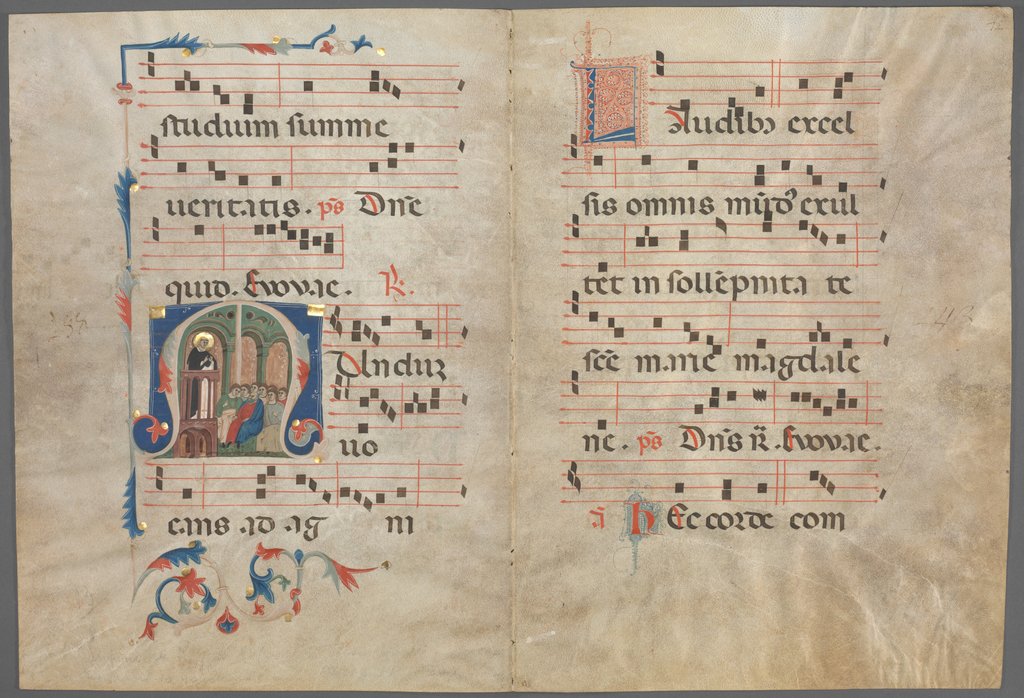 studium summe
ueritatis. ps Dn̄e
quid. Evovae. R.
Mundum uo
cans ad ag ni
Laudibꝫ excel
sis omnis mūdꝰ exul
tet in sollēpnita te
scē marie magdale
ne. ps Dn̄s r̄. Evovae.
ā hEc corde com